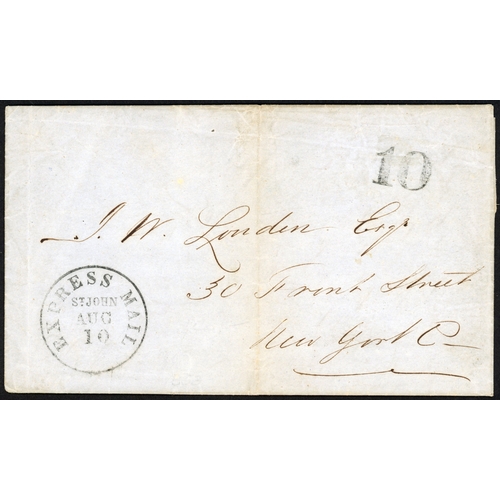 10
J. W. Louden Esqr
30 Front Street
New York C
EXPRESS MAIL
ST JOHN
AUG
10